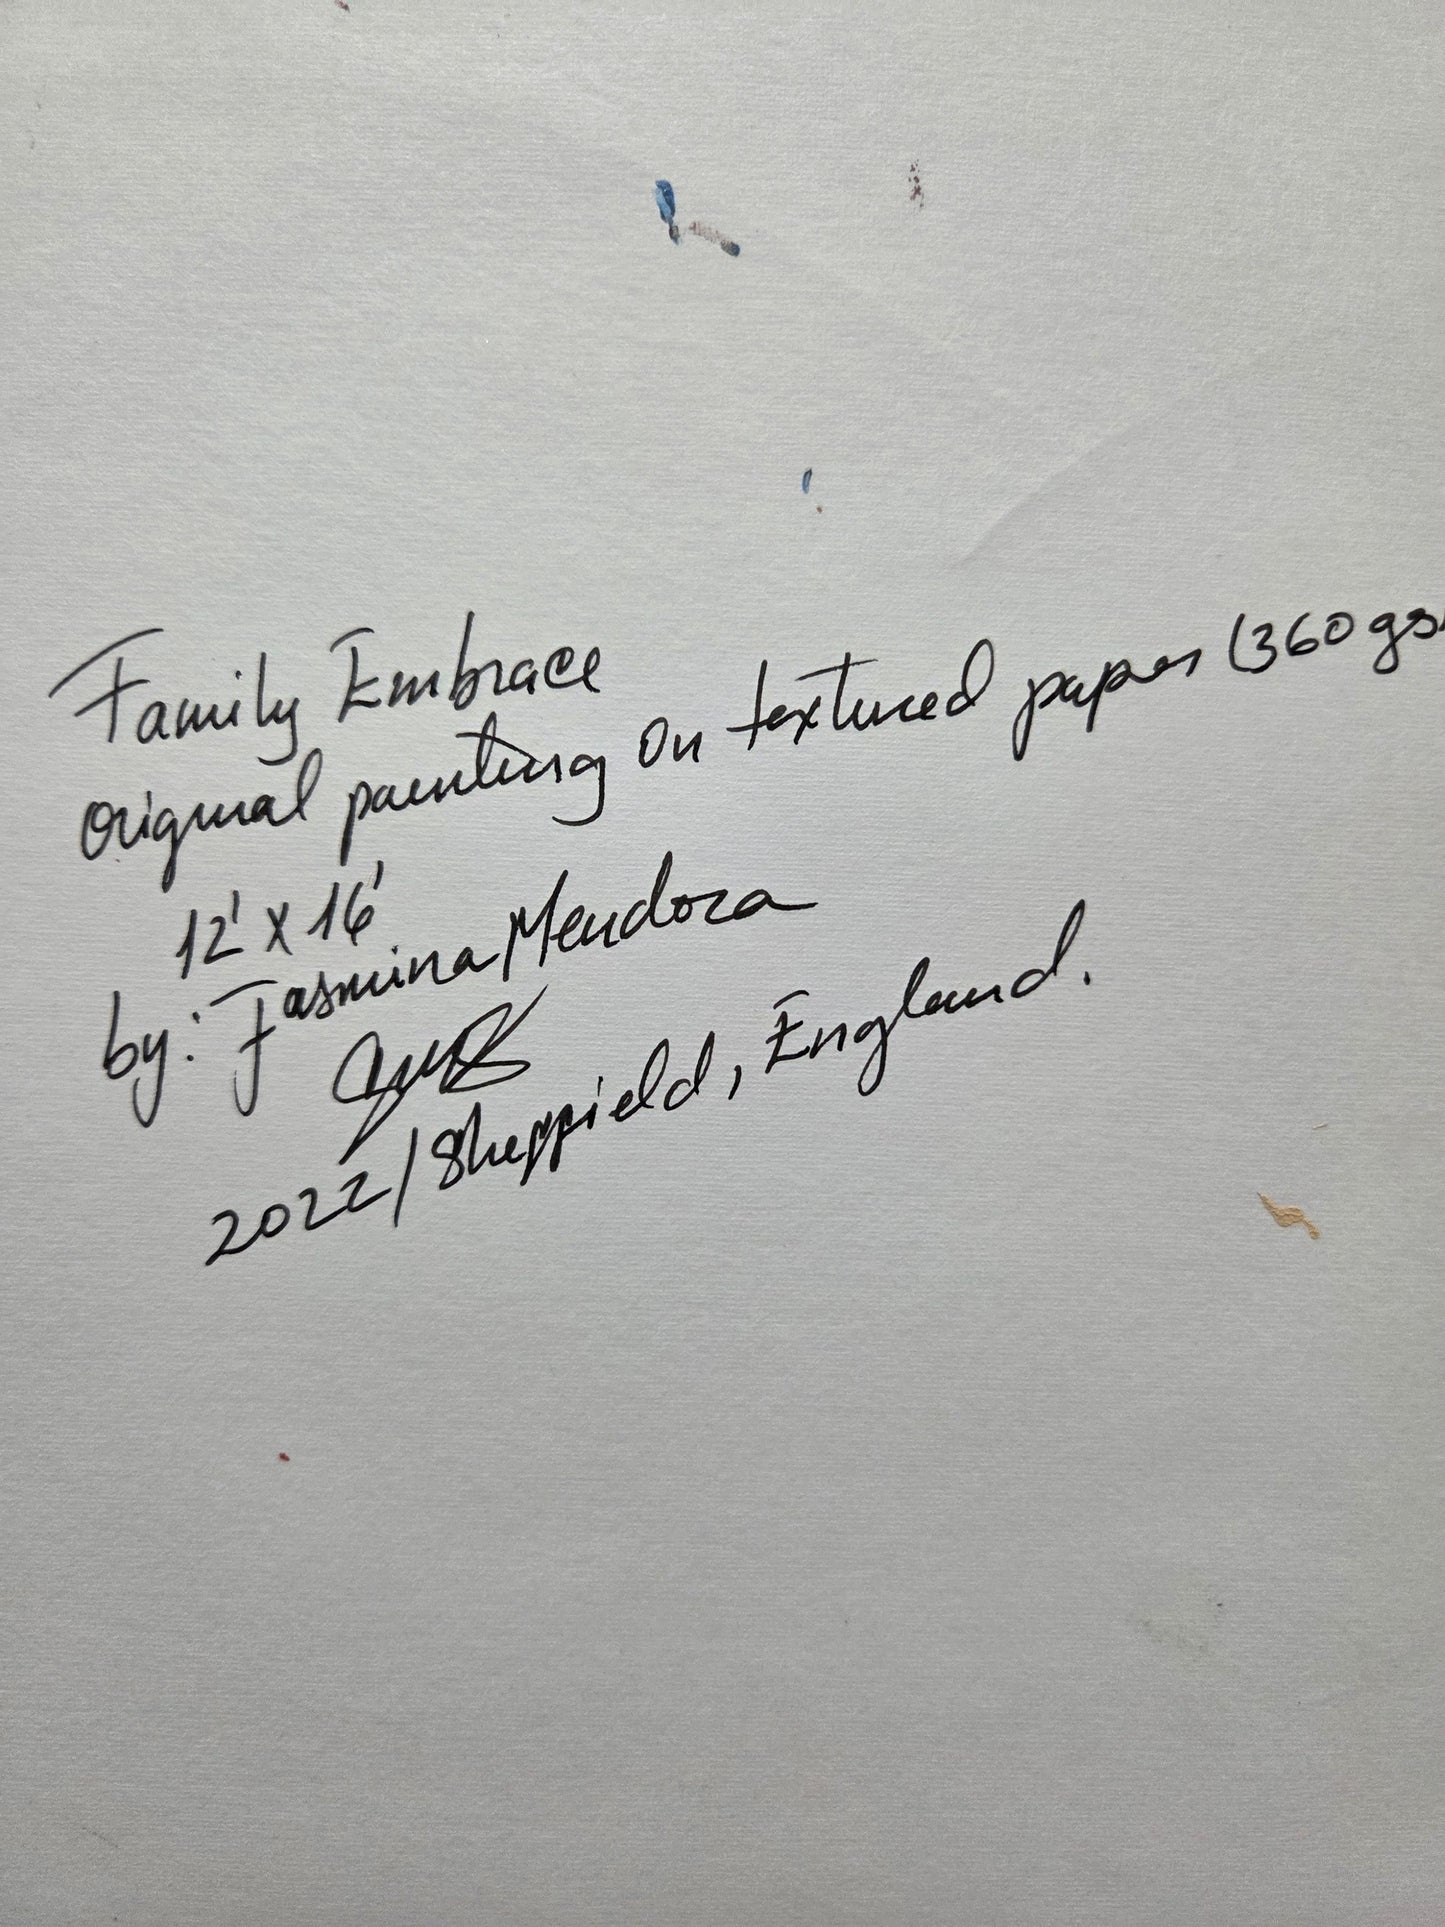 Family Embrace
Original painting on textured paper (360 gs
12' x 16'
by: Jasmina Mendoza
2022/Sheffield, England.